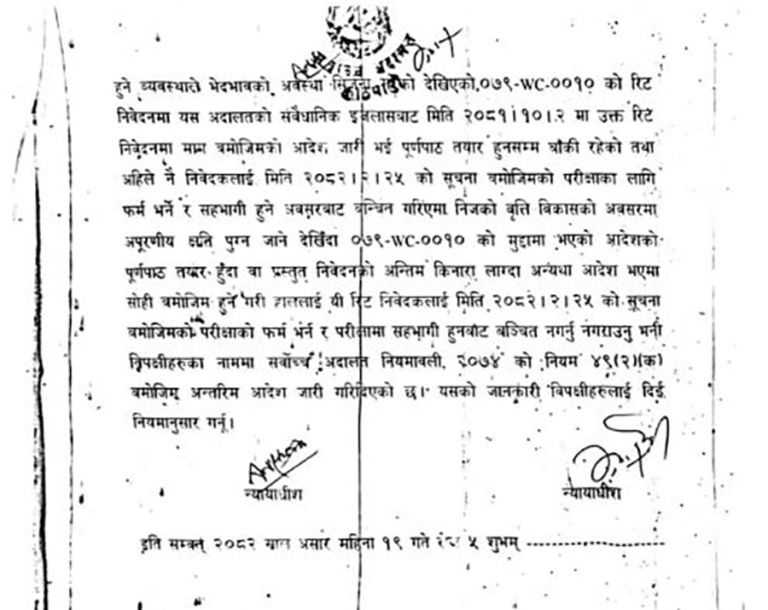 हुने व्यवस्थाले भेदभावको अवस्था देखिएको, ०७९-WC-००१० को रिट
निवेदनमा यस अदालतको संवैधानिक इजलासबाट मिति २०८१।१०।२ मा उक्त रिट
निवेदनमा माग बमोजिमको आदेश जारी भई पूर्णपाठ तयार हुनसम्म बाँकी रहेको तथा
अहिले नै निवेदकलाई मिति २०८२।२।२५ को सूचना बमोजिमको परीक्षाका लागि
फर्म भर्ने र सहभागी हुने अवसरबाट बन्चित गरिएमा निजको वृत्ति विकासको अवसरमा
अपूरणीय क्षति पुग्न जाने देखिंदा ०७९-WC-००१० को मुद्दामा भएको आदेशको
पूर्णपाठ तयार हुँदा वा प्रस्तुत निवेदनको अन्तिम किनारा लाग्दा अन्यथा आदेश भएमा
सोही बमोजिम हुने गरी हाललाई यी रिट निवेदकलाई मिति २०८२।२।२५ को सूचना
बमोजिमको परीक्षाको फर्म भर्न र परीक्षामा सहभागी हुनबाट बञ्चित नगर्नु नगराउनु भनी
विपक्षीहरुका नाममा सर्वोच्च अदालत नियमावली, २०७४ को नियम ४९(२)(क)
बमोजिम अन्तरिम आदेश जारी गरिदिएको छ। यसको जानकारी विपक्षीहरुलाई दिई
नियमानुसार गर्नू।
न्यायाधीश
न्यायाधीश
इति सम्वत् २०८२ साल असार महिना १९ गते रोज ५ शुभम् ------------------